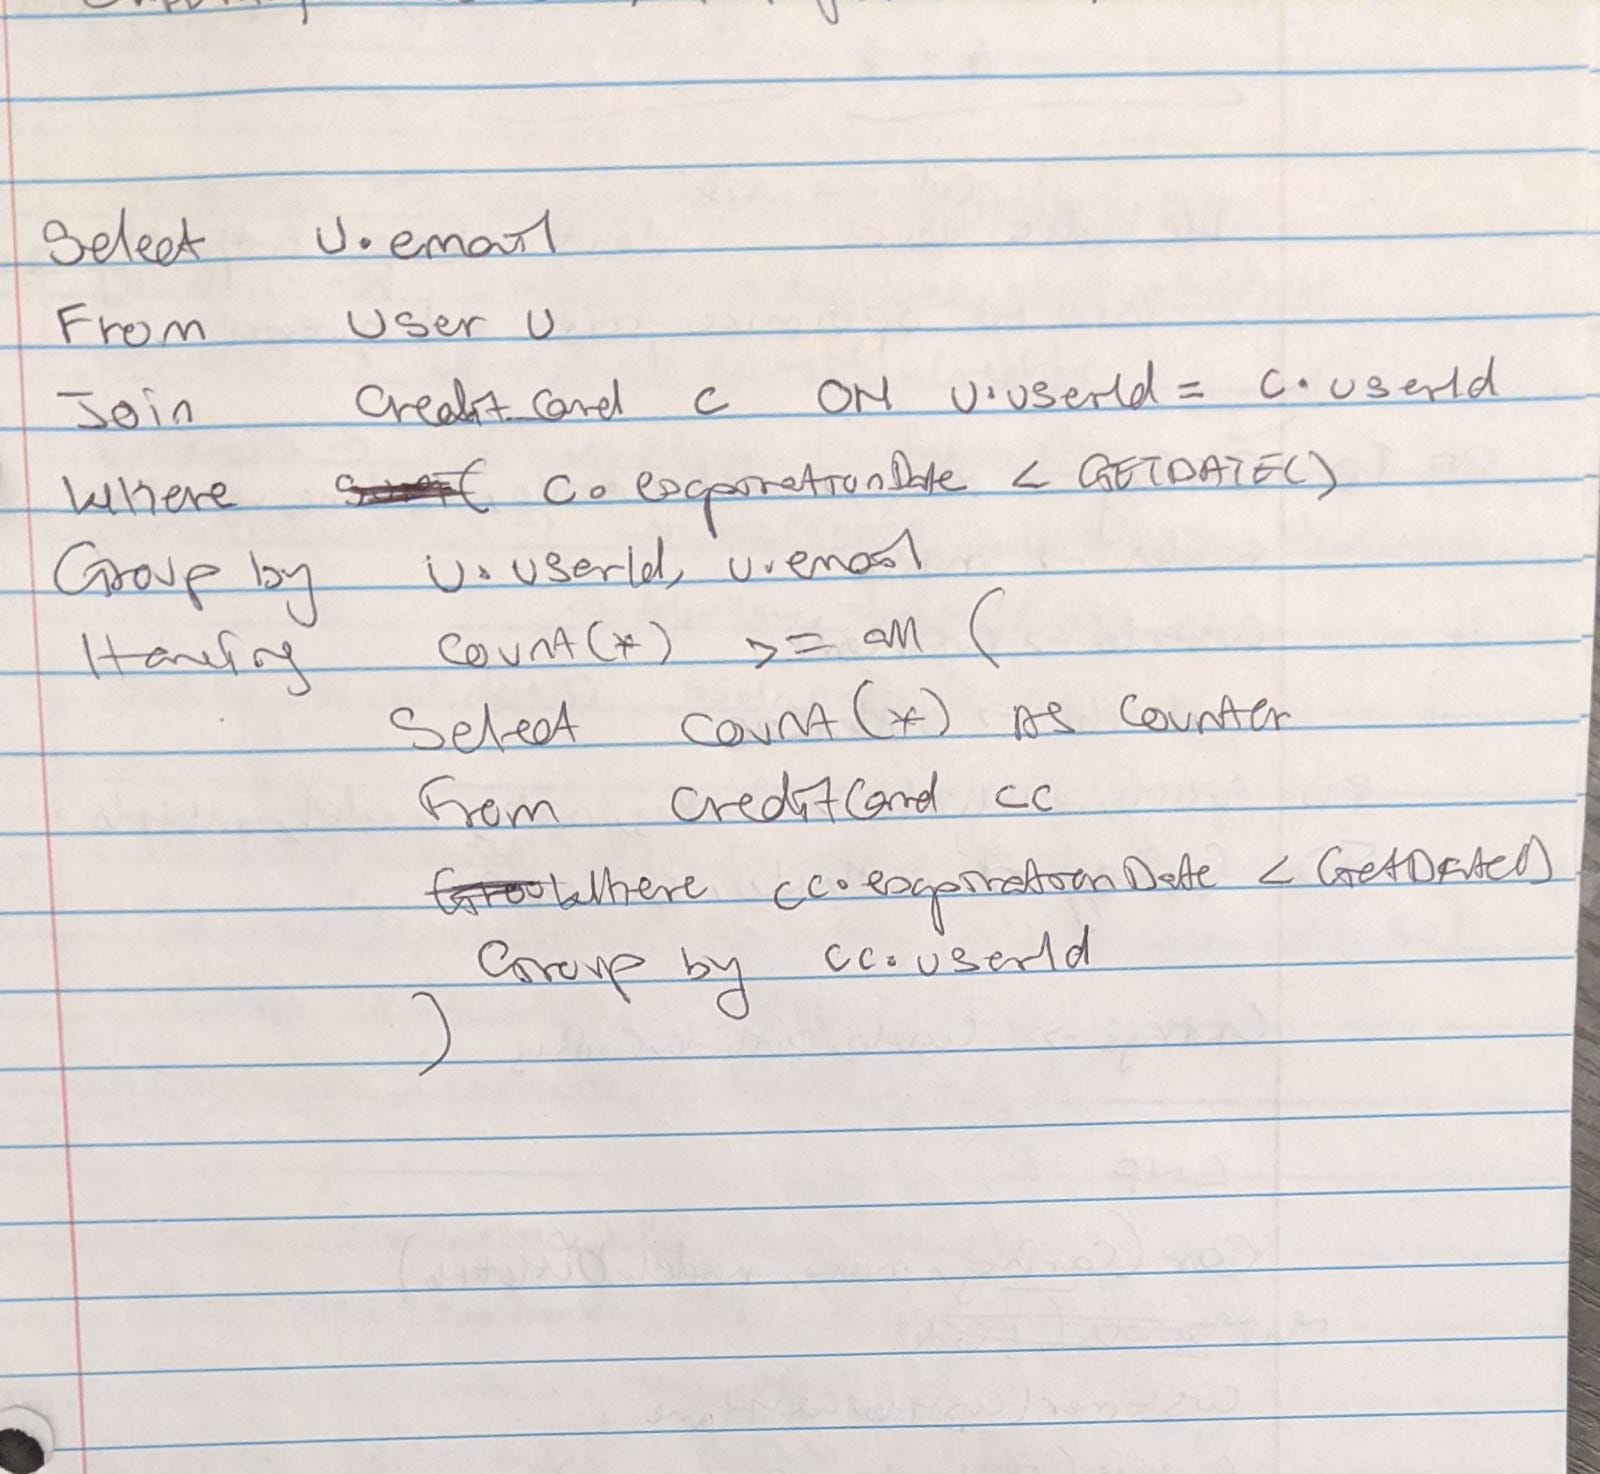 Select U. email
From User U
Join Credit Card c ON U.UserId = C. UserId
Where C. expirationDate < GETDATE()
Group by U. UserId, U.email
Having Count(*) >= all (
Select Count(*) As Counter
From CreditCard cc
Where cc. expirationDate < GetDAte()
Group by cc. UserId
)